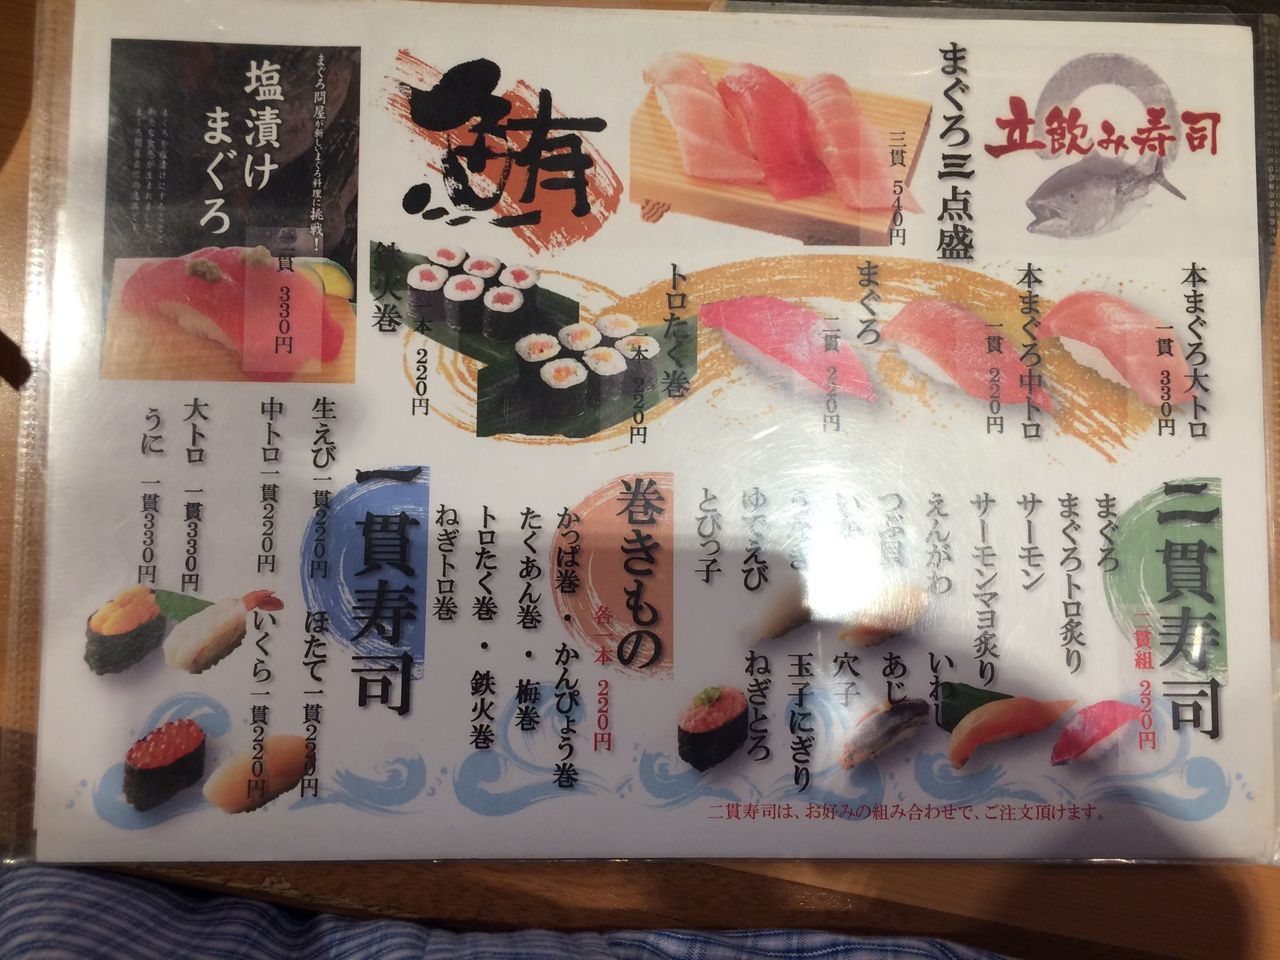 立飲み寿司
まぐろ三点盛
三貫 540円
鮪
まぐろ問屋が新しいまぐろ料理に挑戦！
塩漬け
まぐろ
二貫 330円
本まぐろ大トロ
一貫 330円
本まぐろ中トロ
一貫 220円
まぐろ
二貫 220円
トロたく巻
一本 220円
鉄火巻
一本 220円
二貫寿司
二貫組 220円
まぐろ
まぐろトロ炙り
サーモン
サーモンマヨ炙り
えんがわ
いわし
つぶ貝
あじ
いか
穴子
玉子にぎり
ゆでえび
ねぎとろ
とびっ子
二貫寿司は、お好みの組み合わせで、ご注文頂けます。
巻きもの
各一本 220円
かっぱ巻・かんぴょう巻
たくあん巻・梅巻
トロたく巻・鉄火巻
ねぎトロ巻
一貫寿司
生えび一貫220円
ほたて一貫220円
中トロ一貫220円
いくら一貫220円
大トロ 一貫330円
うに 一貫330円